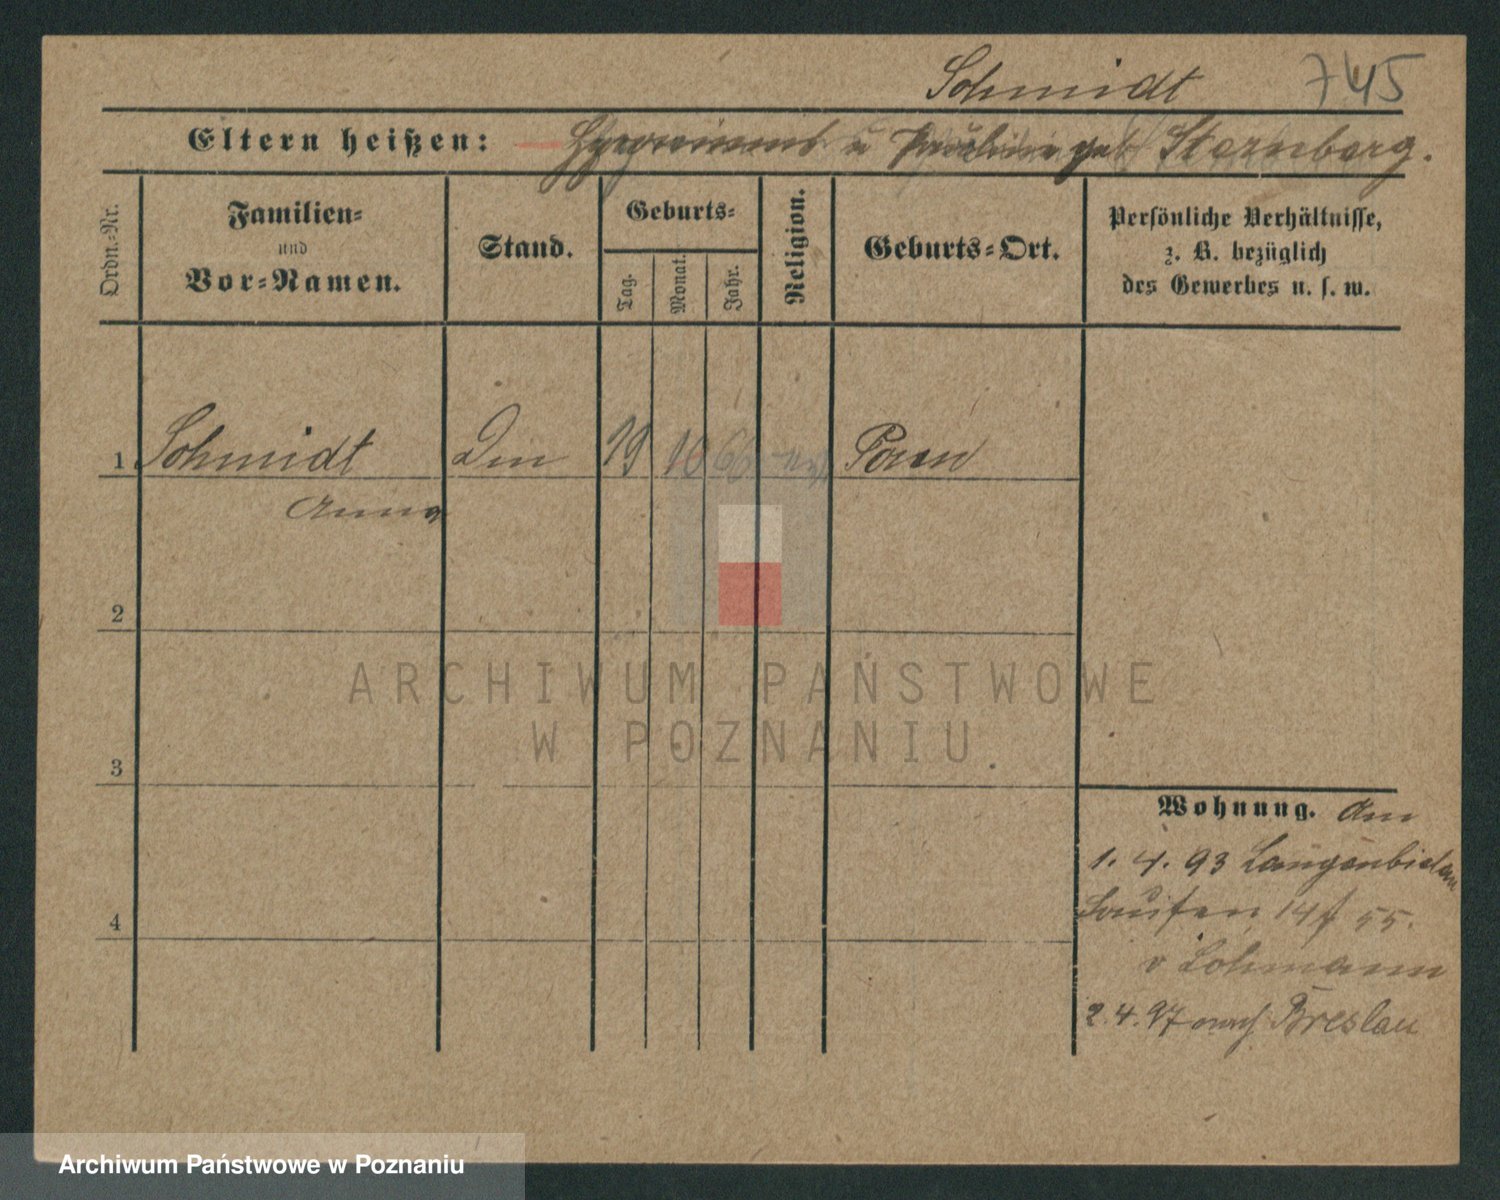 Schmidt 745
Eltern heißen: u Pauline geb Sternberg.
Ordn.-Nr.
Familien-
und
Vor-Namen.
Stand.
Geburts-
Tag.
Monat.
Jahr.
Religion.
Geburts-Ort.
Persönliche Verhältnisse,
z. B. bezüglich
des Gewerbes u. s. w.
1 Schmidt 19 10 66 Posen
Anna
2
3
4
ARCHIWUM PAŃSTWOWE
W POZNANIU
Wohnung. Am
1. 4. 93 Langenbielau
55.
v Lohmann
2.4.97 nach Breslau
Archiwum Państwowe w Poznaniu